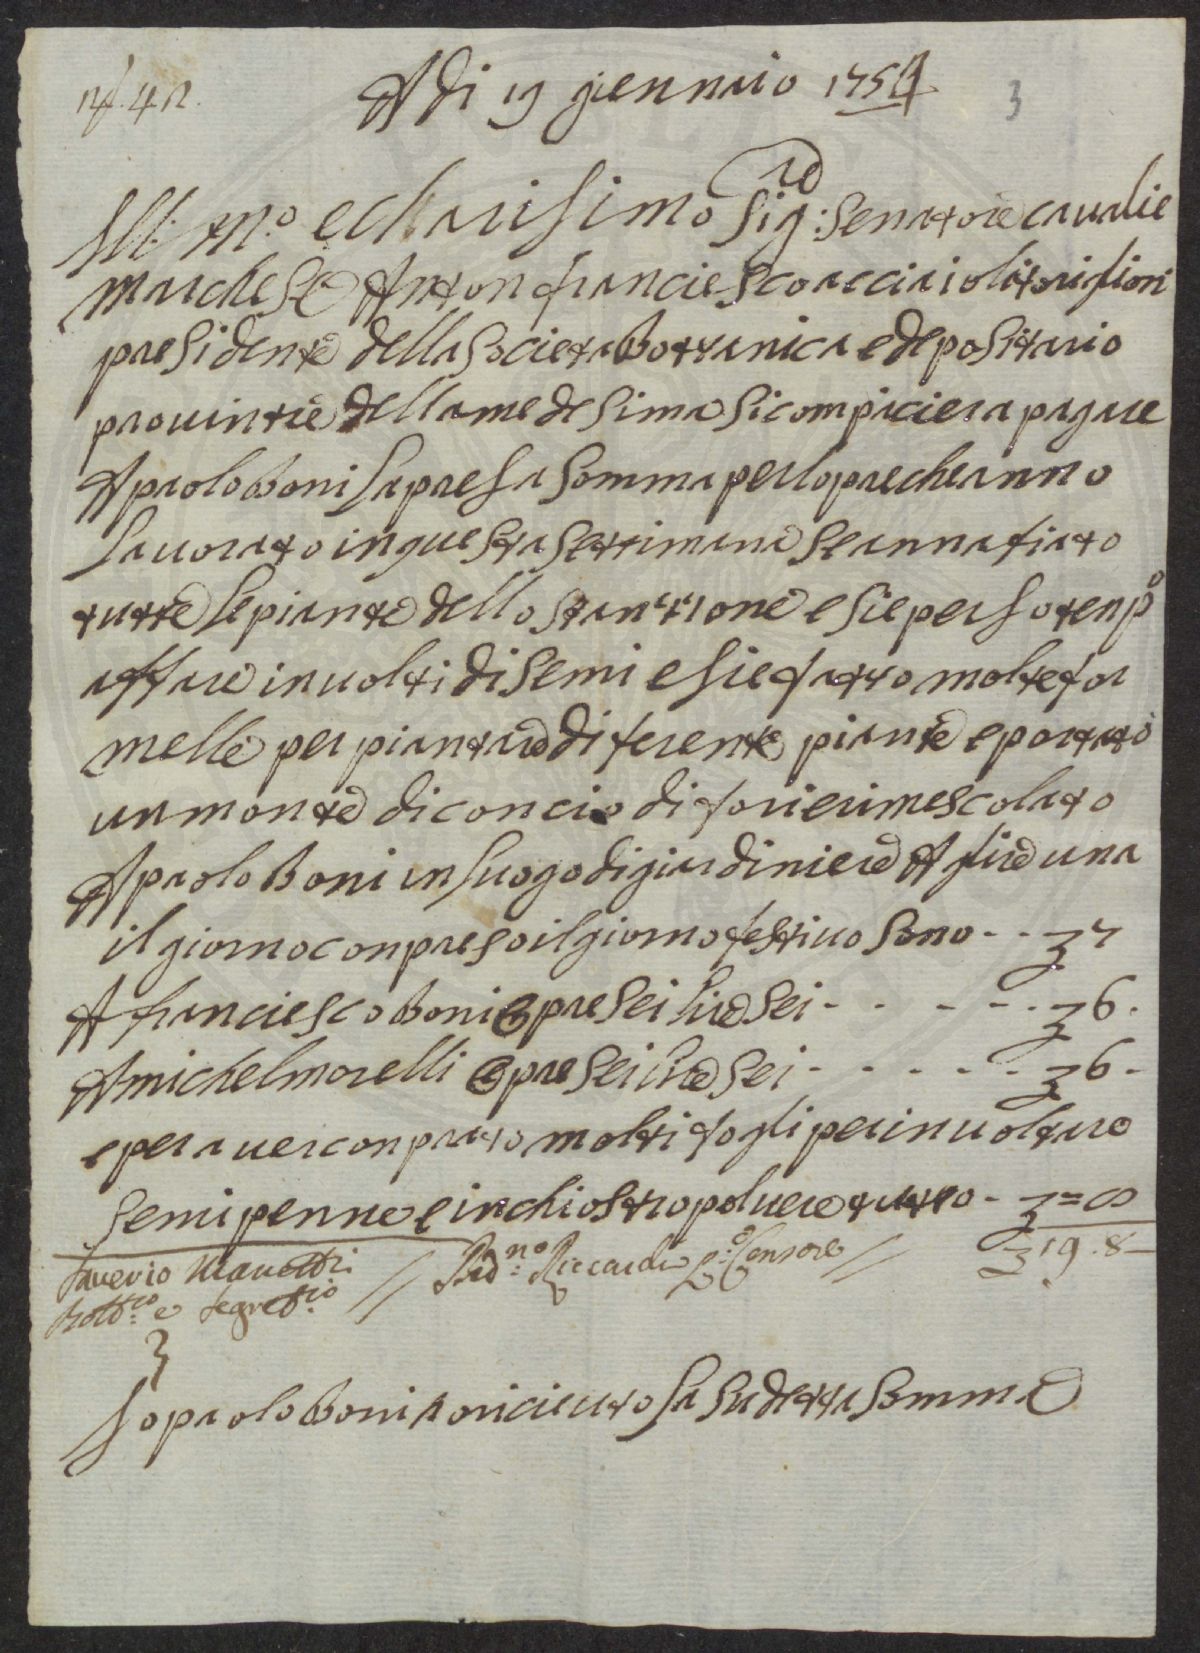 nº. 42.
A di 19 giennaio 1754
3
Ill:mo. e charisimo Sig:re Senatore cavalie
marchese Anton franciesco acciaioli torigioni
presidente della Societa Bottanica e depositario
provintie della medesima si compiaciera pagare
A paolo Boni la presa somma per lopre che anno
lavorato in questa settimana se annafiato
tutte le piante dello stanzione e sie perso tenpo
affare involti di semi e sie fatto molte for
melle per piantare diferente piante e portato
un monte di concio di fori e rimescolato
A paolo Boni in luogo di giardiniere A lire una
il giorno conpreso il giorno festivo sono - - 7
A franciesco Boni opre Sei lire Sei - - - - - 6.
A michel morelli opre Sei lire Sei - - - - - - 6 -
e per aver conprato molti fogli per involtare
semi penne e inchiostro polvere tutto - = 8
19. 8 -
Saverio Manetti // Bid:no Riccardi Pº: Censore //
Bott:co e Segret:rio
Io paolo Boni o riciuto la sudetta Somma